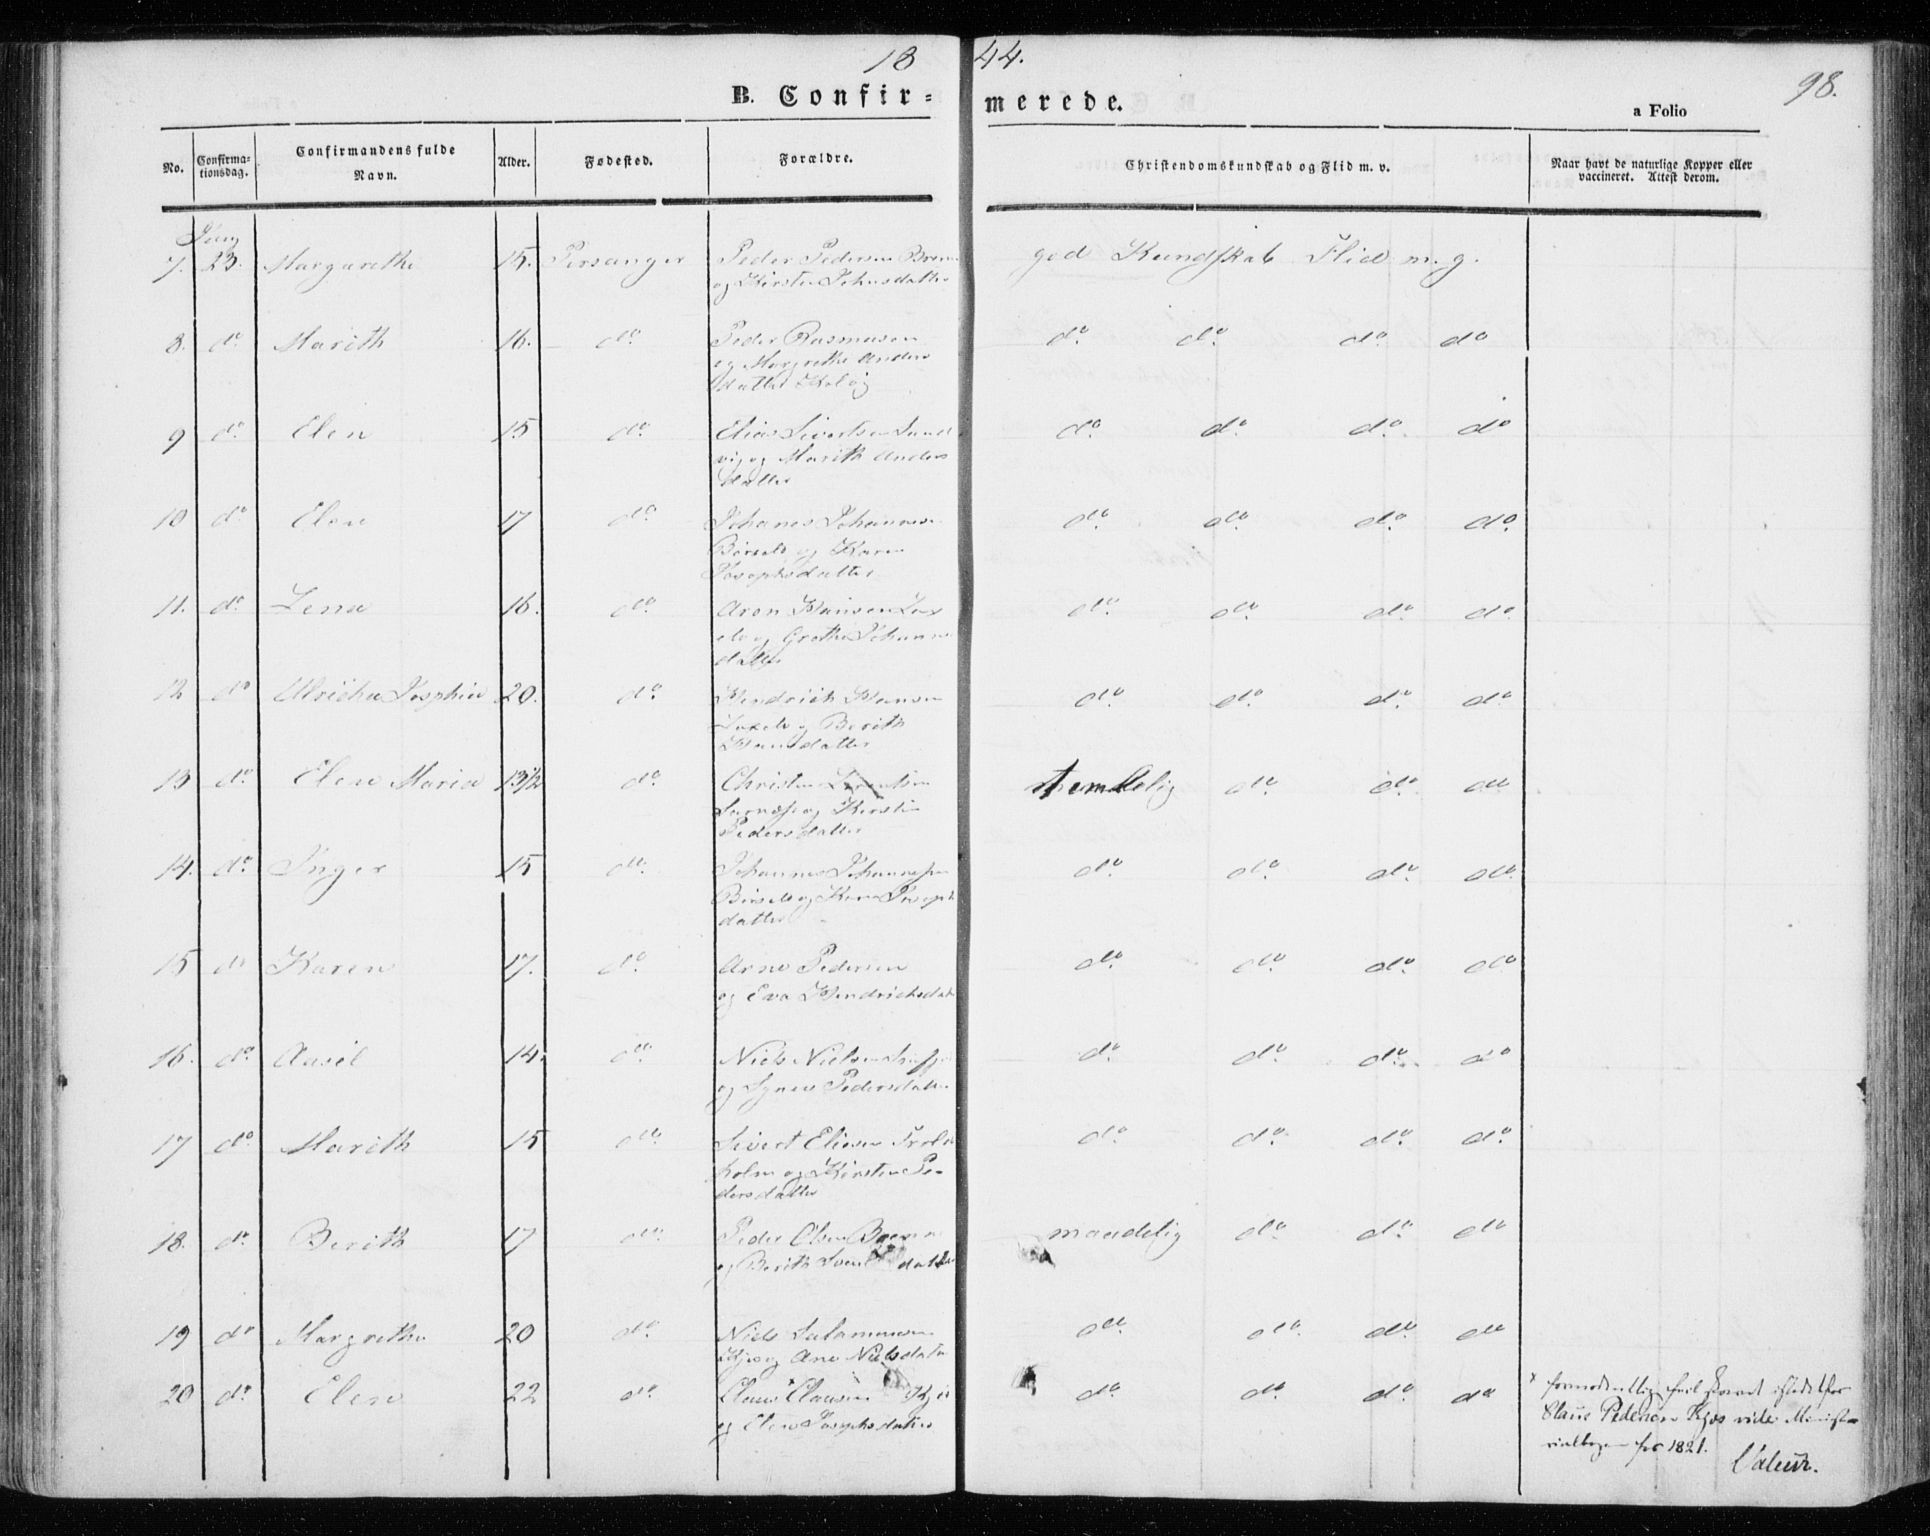 18 44.
98.
B. Confir= merede.
a Folio
No.
Confirma-
tionsdag.
Confirmandens fulde
Navn.
Alder.
Fødested.
Forældre.
Christendomskundskab og Flid m. v.
Naar havt de naturlige Kopper eller
vaccineret. Attest derom.
7. 23. Margarethe 15. Porsanger Peder Pedersen god Kundskab Flid m. g.
og Kirsten Johnsdatter
8. do Marith 16. do Peder Rasmusen do do do do
og Margrethe Anders
datter
9 do Elen 15 do Elias Sivertsen Sand do do do do
vig og Marith Anders
datter
10 do Elen 17 do Johanes Johannesen do do do do
Børselv og Karen
Josephsdatter
11. do Lena 16. do Aron Hansen Lax do do do do
elv og Grethe Johannes
datter
12 do Ulricha Josephine 20. do Hendrich Hansen do do do do
Laxelv og Berith
Hansdatter
13 do Elen Maria 13½ do Christen temmelig do do do
og Kirsten
Pedersdatter
14. do Inger 15 do Johannes Johannesen do do do do
Børselv og Karen Joseph
datter
15 do Karen 17. do Arne Pedersen do do do do
og Eva Hendrichsdat
16. do Aasel 14. do Niels Nielsen do do do do
og Pedersdatter
17 do Marith 15 do Sivert Eliesen Trold do do do do
holm og Kirsten Pe-
dersdatter
18. do Berith 17 do Peder Olsen maadelig do do do
og Berith datter
19 do Margrethe 20 do Niels Salamonsen do do do do
Kjæs og Ane Nielsdatter
20 do Elen 22 do Claus Clausen Kjæs do do do do
og Elen Josephsdatter
x formodentlig feil skrevet istedetfor
Claus Pedersen Kjæs vide Ministe-
rialbogen for 1821.